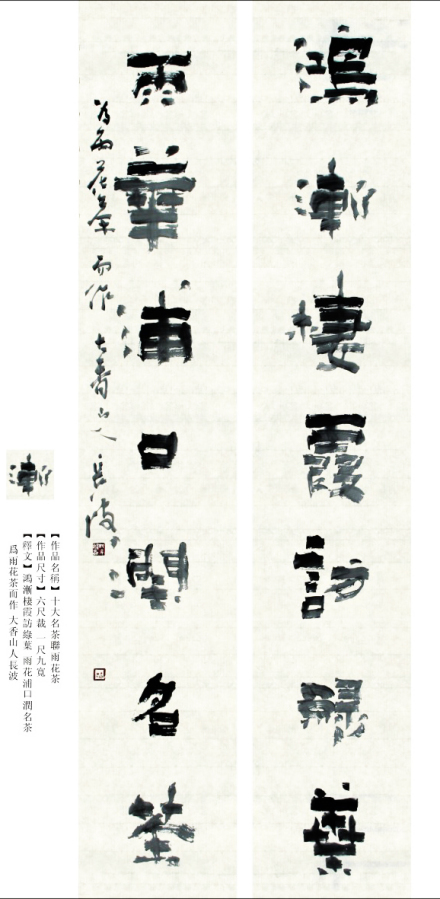 鴻漸棲霞訪綠葉
雨華浦口潤名茶
為雨花茶而作 大香山人長波
漸
【作品名稱】十大名茶聯雨花茶
【作品尺寸】六尺裁 一尺九寬
【釋文】鴻漸棲霞訪綠葉 雨花浦口潤名茶
爲雨花茶而作 大香山人長波